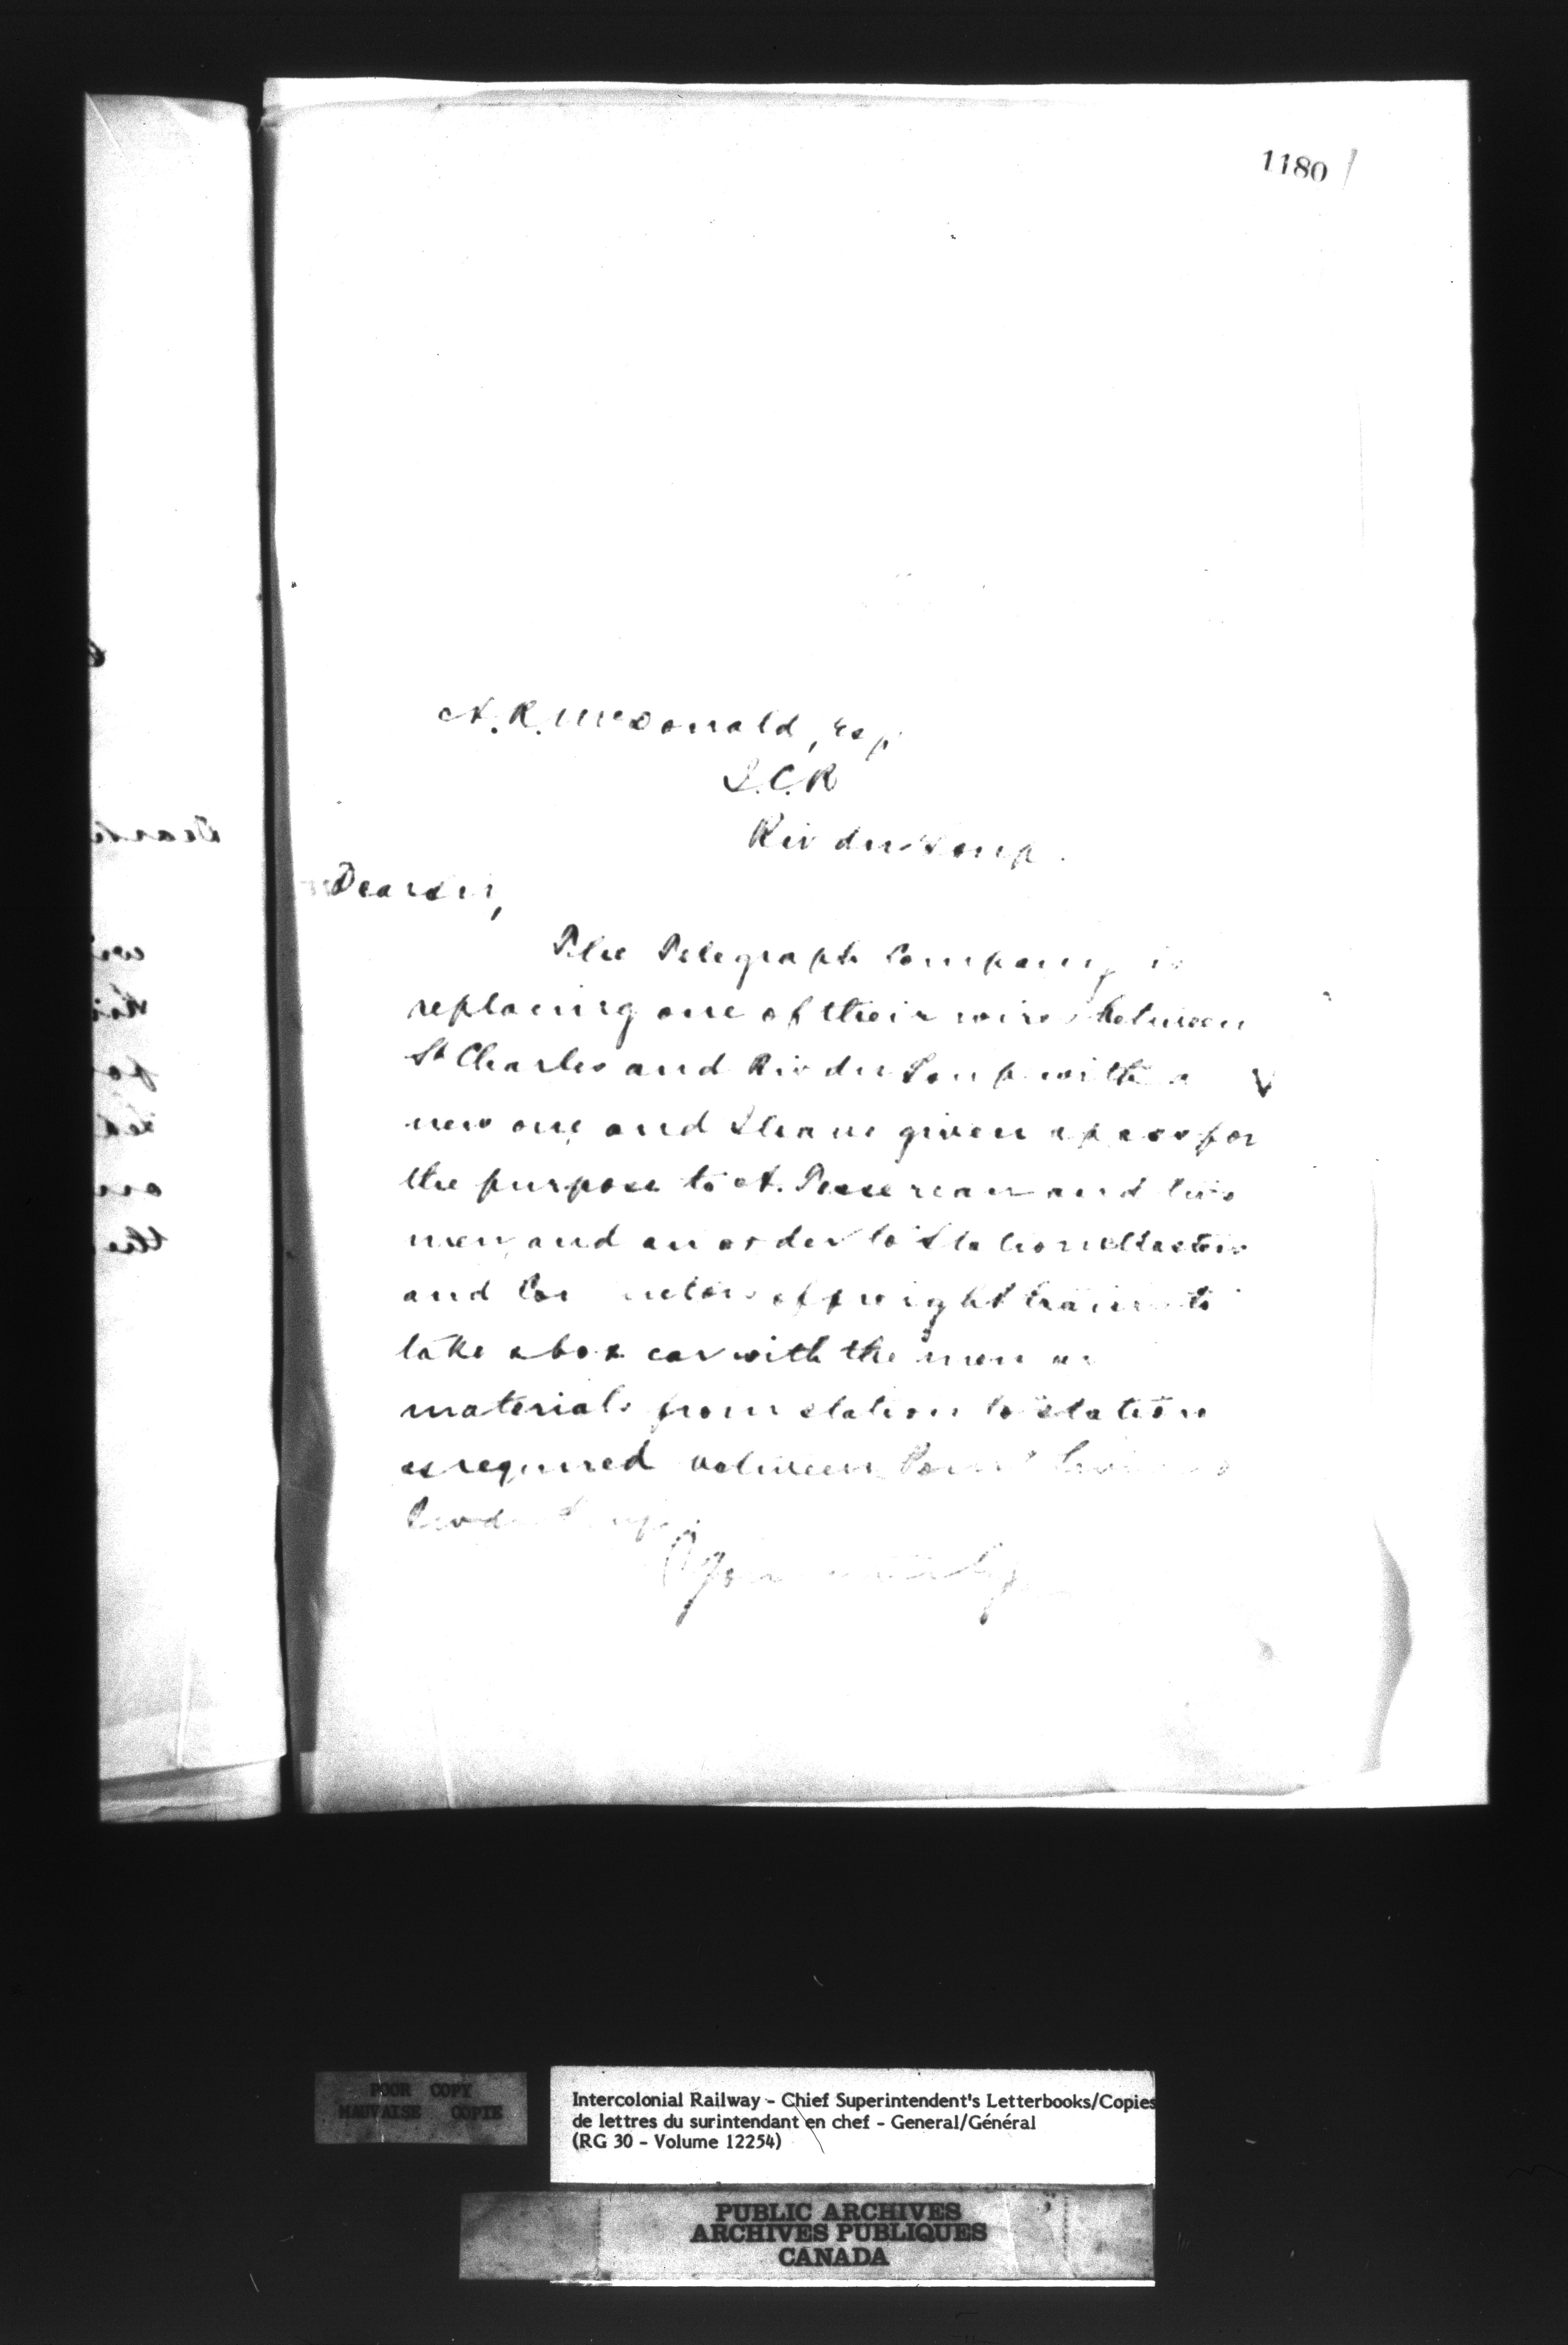 1180
A. R. McDonald, Esq
I.C.R
Riv du Loup.
Dear Sir,
The Telegraph Company is
replacing one of their wires between
St Charles and Riv du Loup with a
new one and I have given a pass for
the purpose to A. and two
men and an order to Station Masters
and of freight trains to
take a box car with the men or
materials from station to station
as required between Point
Riv du Loup
Yours
Dear
the
POOR COPY
MAUVAISE COPIE
Intercolonial Railway - Chief Superintendent's Letterbooks/Copies
de lettres du surintendant en chef - General/Général
(RG 30 - Volume 12254)
PUBLIC ARCHIVES
ARCHIVES PUBLIQUES
CANADA